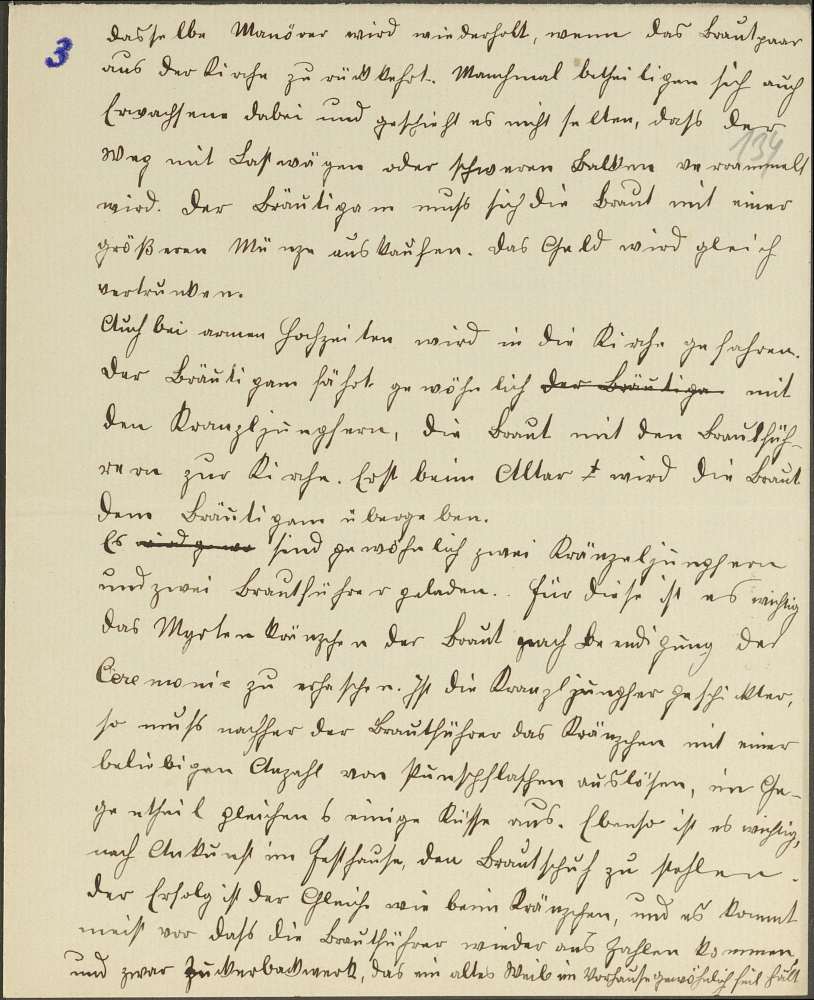 3
dasselbe Manöver wird wiederholt, wenn das Brautpaar
aus der Kirche zurückkehrt. Manchmal betheiligen sich auch
Erwachsene dabei und geschieht es nicht selten, dass der
134
Weg mit Lastwägen oder schweren Balken verrammelt
wird. Der Bräutigam muss sich die Braut mit einer
größeren Münze auskaufen. Das Geld wird gleich
vertrunken.
Auch bei armen Hochzeiten wird in die Kirche gefahren.
Der Bräutigam fährt gewöhnlich der Bräutiga mit
den Kranzljungfern, die Braut mit den Brautfüh-
rern zur Kirche. Erst beim Altar wird die Braut
dem Bräutigam übergeben.
Es wird gewö sind gewöhnlich zwei Kränzeljungfern
und zwei Brautführer geladen. Für diese ist es wichtig
das Myrtenkränzchen der Braut nach Beendigung der
Ceremonie zu erhaschen. Ist die Kranzljungfer geschickter,
so muss nachher der Brautführer das Kränzchen mit einer
beliebigen Anzahl von Punschflaschen auslösen, im Ge-
gentheil gleichen s einige Küsse aus. Ebenso ist es wichtig,
nach Ankunft im Festhause, den Brautschuh zu stehlen.
Der Erfolg ist der Gleiche wie beim Kränzchen, und es kommt
meist vor dass die Brautführer wieder ans Zahlen kommen,
und zwar Zuckerbackwerk, das ein altes Weib im Vorhause gewöhnlich feil hält